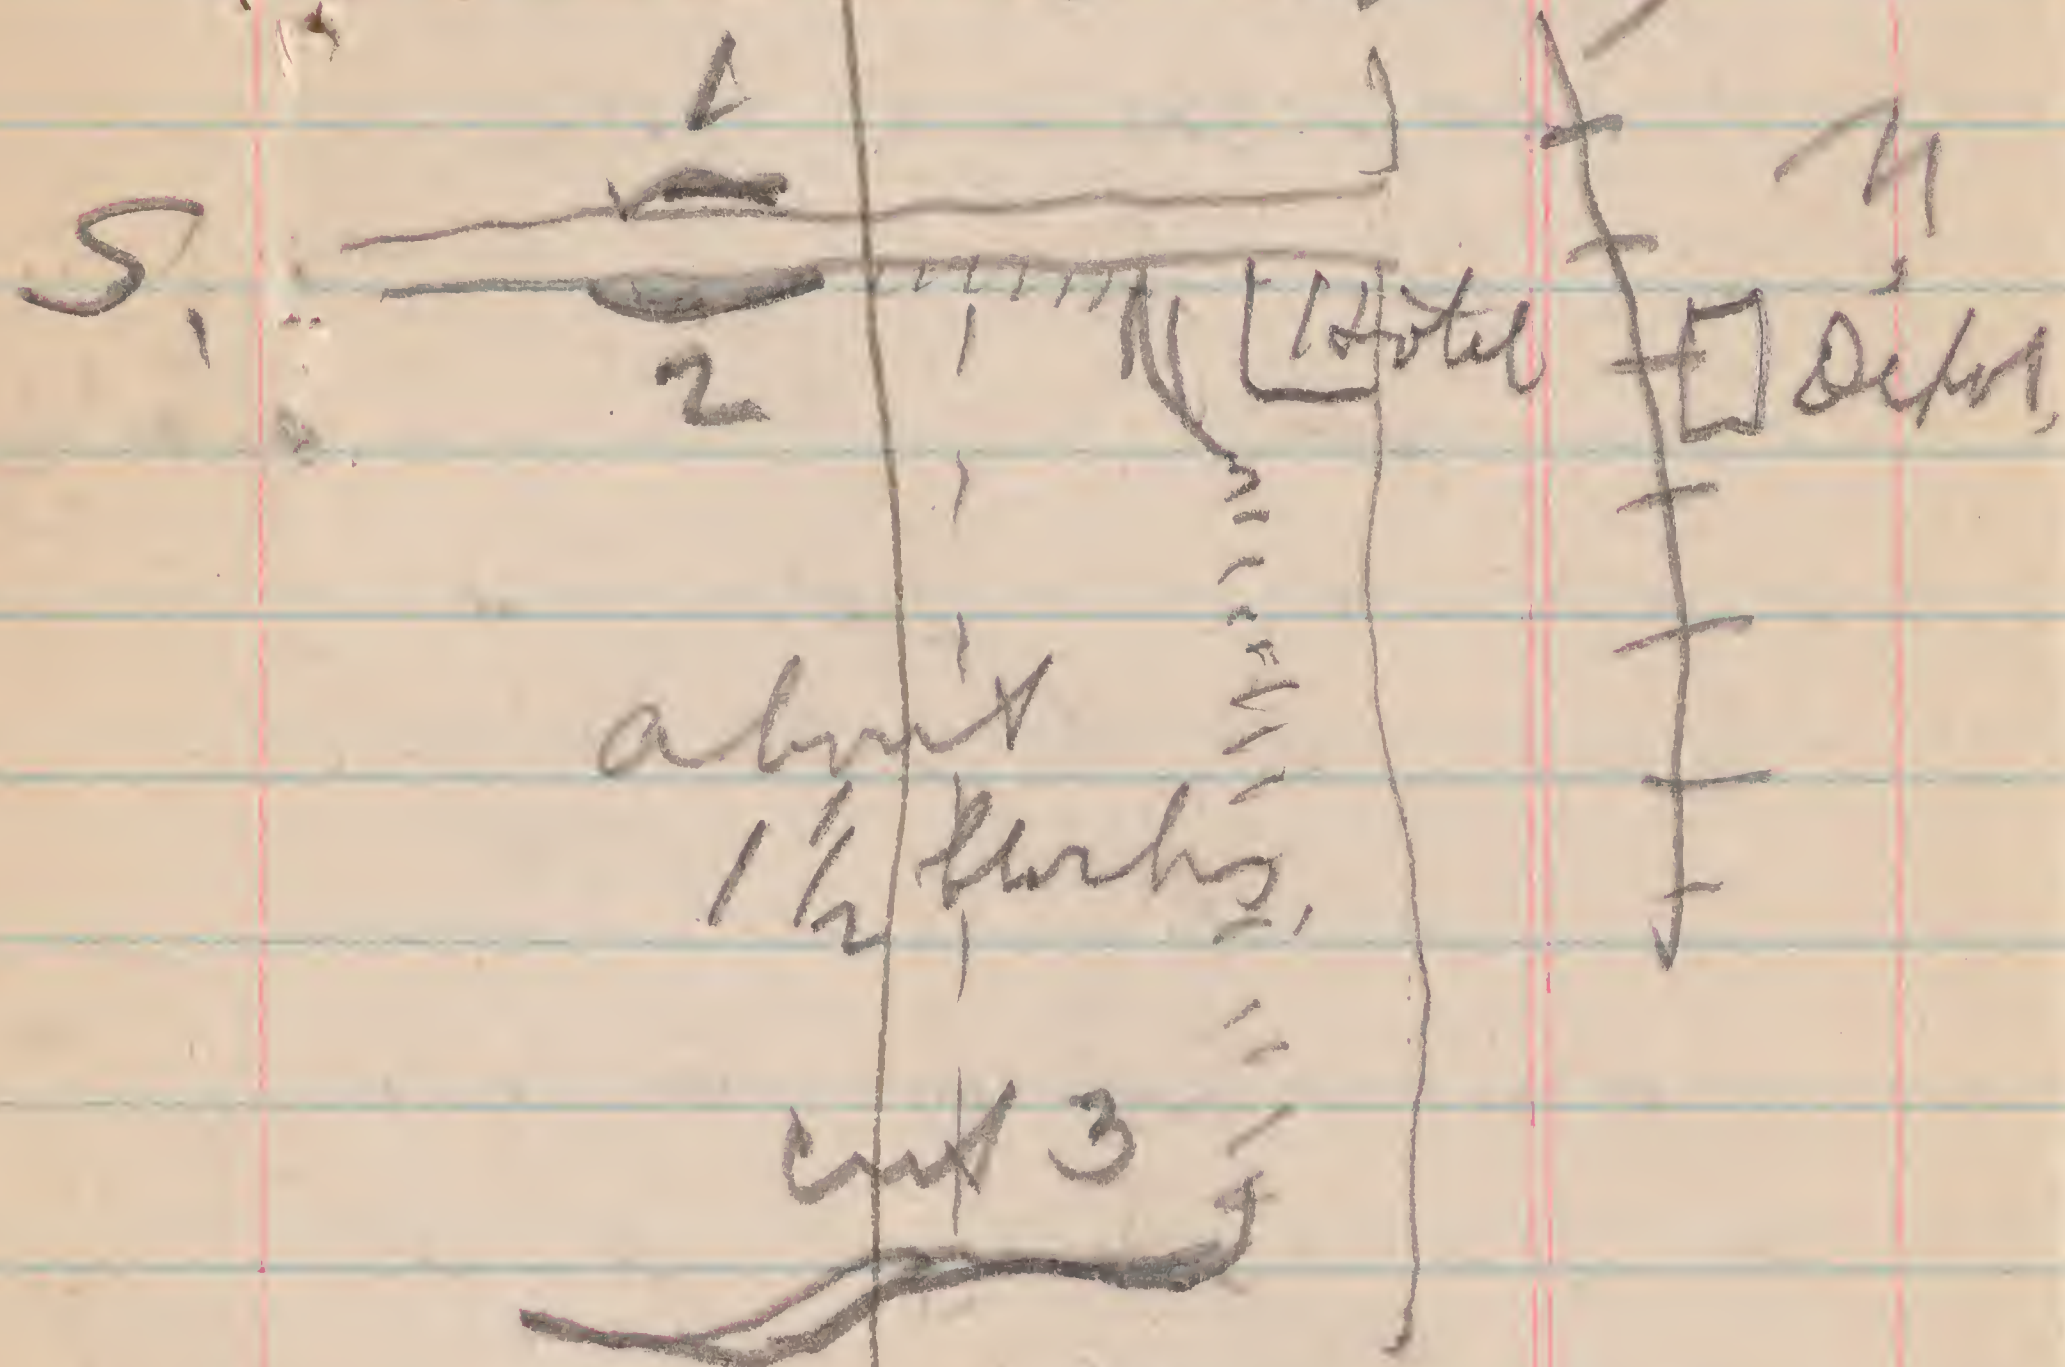 1
S.
N.
2
Hotel
Depot,
about
1 1/2 blocks,
cut 3